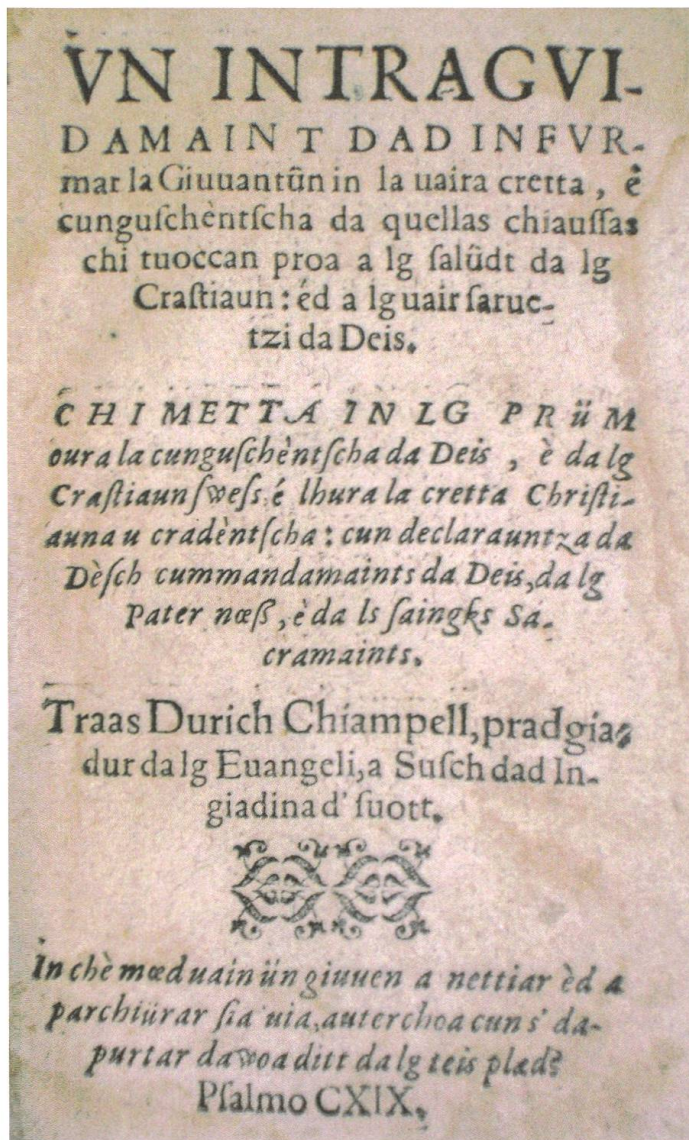 VN INTRAGVI-
DAMAINT DAD INFVR-
mar la Giuuantün in la uaira cretta, è
cunguſchèntſcha da quellas chiauſſas
chi tuoccan proa a lg ſalüdt da lg
Craſtiaun: éd a lg uair ſarue-
tzi da Deis.
CHI METTA IN LG PRüM
oura la cunguſchèntſcha da Deis, è da lg
Craſtiaun ſweſs. é lhura la cretta Chriſti-
auna u cradèntſcha: cun declarauntza da
Dèſch cummandamaints da Deis, da lg
Pater nœß, è da ls ſaingks Sa-
cramaints.
Traas Durich Chiampell, pradgia-
dur da lg Euangeli, a Suſch dad In-
giadina d' ſuott.
In chè mœd uain ün giuuen a nettiar èd a
parchiürar ſia uia, auter choa cun s' da-
purtar dawoa ditt da lg teis plæd?
Pſalmo CXIX.